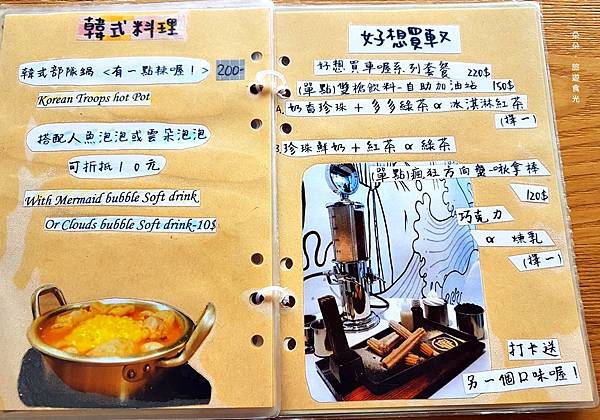 韓式料理
韓式部隊鍋<有一點辣喔!> 200-
Korean Troops hot Pot
搭配人魚泡泡或雲朵泡泡
可折抵10元
With Mermaid bubble Soft drink
Or Clouds bubble Soft drink-10$
好想買車ㄡ
好想買車喔系列套餐 220$
(單點)雙槍飲料-自助加油站 150$
A.奶香珍珠+多多綠茶 or 冰淇淋紅茶
(擇一)
B.珍珠鮮奶+紅茶 or 綠茶
(單點)瘋狂方向盤-吉拿棒
120$
巧克力
or 煉乳
(擇一)
打卡送
另一個口味喔!
朵朵 旅遊食光